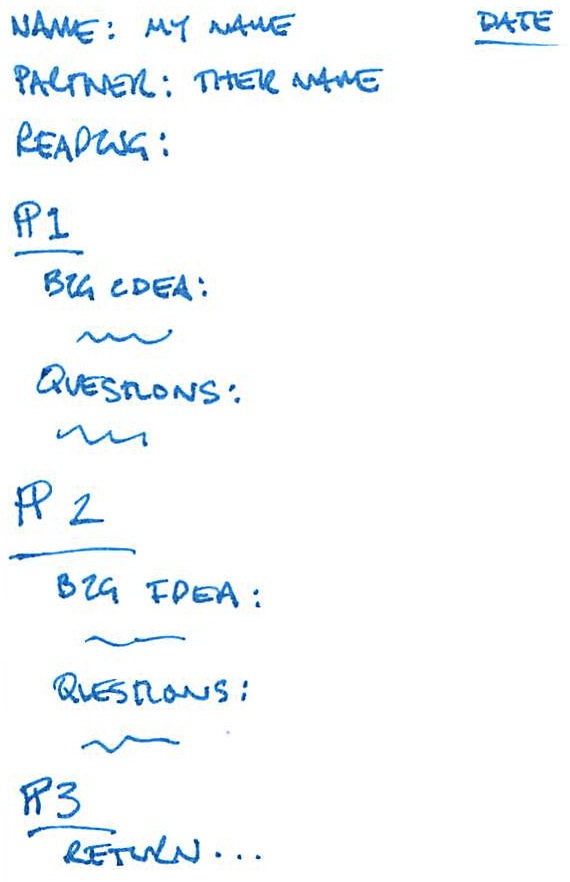 NAME: MY NAME DATE
PARTNER: THEIR NAME
READING:
¶1
BIG IDEA:
QUESTIONS:
¶2
BIG IDEA:
QUESTIONS:
¶3
RETURN...